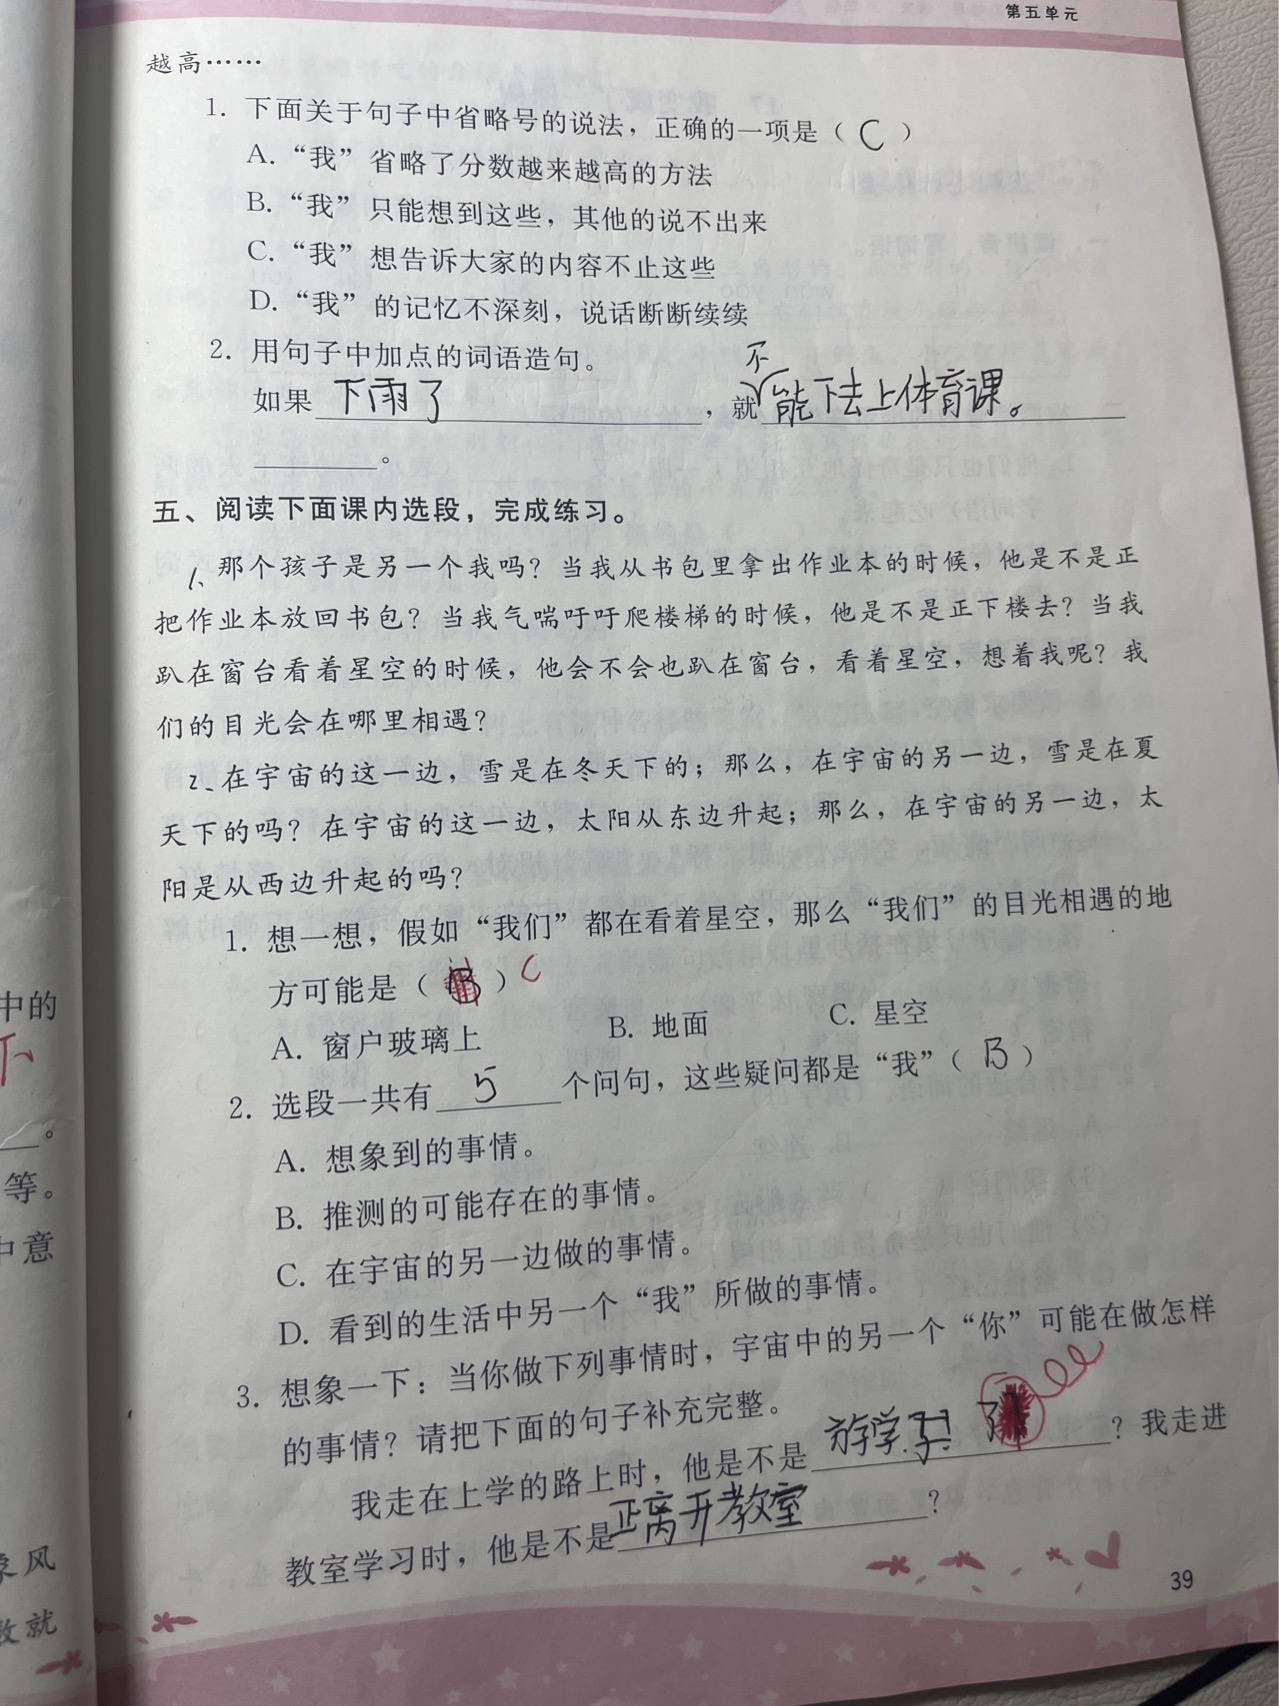 第五单元
越高……
1. 下面关于句子中省略号的说法，正确的一项是（ C ）
A. “我”省略了分数越来越高的方法
B. “我”只能想到这些，其他的说不出来
C. “我”想告诉大家的内容不止这些
D. “我”的记忆不深刻，说话断断续续
2. 用句子中加点的词语造句。
不
如果下雨了，就能下去上体育课。
。
五、阅读下面课内选段，完成练习。
1、那个孩子是另一个我吗？当我从书包里拿出作业本的时候，他是不是正
把作业本放回书包？当我气喘吁吁爬楼梯的时候，他是不是正下楼去？当我
趴在窗台看着星空的时候，他会不会也趴在窗台，看着星空，想着我呢？我
们的目光会在哪里相遇？
2、在宇宙的这一边，雪是在冬天下的；那么，在宇宙的另一边，雪是在夏
天下的吗？在宇宙的这一边，太阳从东边升起；那么，在宇宙的另一边，太
阳是从西边升起的吗？
1. 想一想，假如“我们”都在看着星空，那么“我们”的目光相遇的地
方可能是（ B ）C
A. 窗户玻璃上 B. 地面 C. 星空
2. 选段一共有 5 个问句，这些疑问都是“我”（ B ）
A. 想象到的事情。
B. 推测的可能存在的事情。
C. 在宇宙的另一边做的事情。
D. 看到的生活中另一个“我”所做的事情。
3. 想象一下：当你做下列事情时，宇宙中的另一个“你”可能在做怎样
的事情？请把下面的句子补充完整。
我走在上学的路上时，他是不是放学了？我走进
教室学习时，他是不是正离开教室？
39
中的
不
。
等。
中意
象风
数就